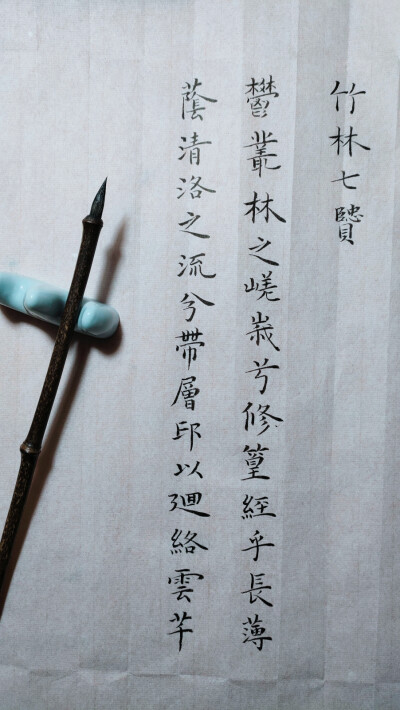 竹林七贒
鬱叢林之嵯峩兮修篁經乎長薄
蔭清洛之流兮帶層邱以廻絡雲芊